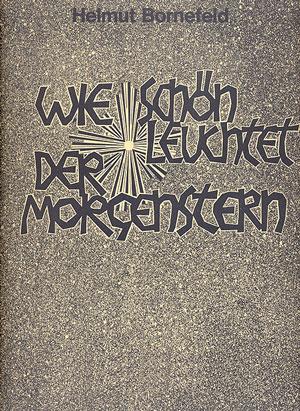 Helmut Bornefeld
WIE SCHÖN
LEUCHTET
DER
MORGENSTERN